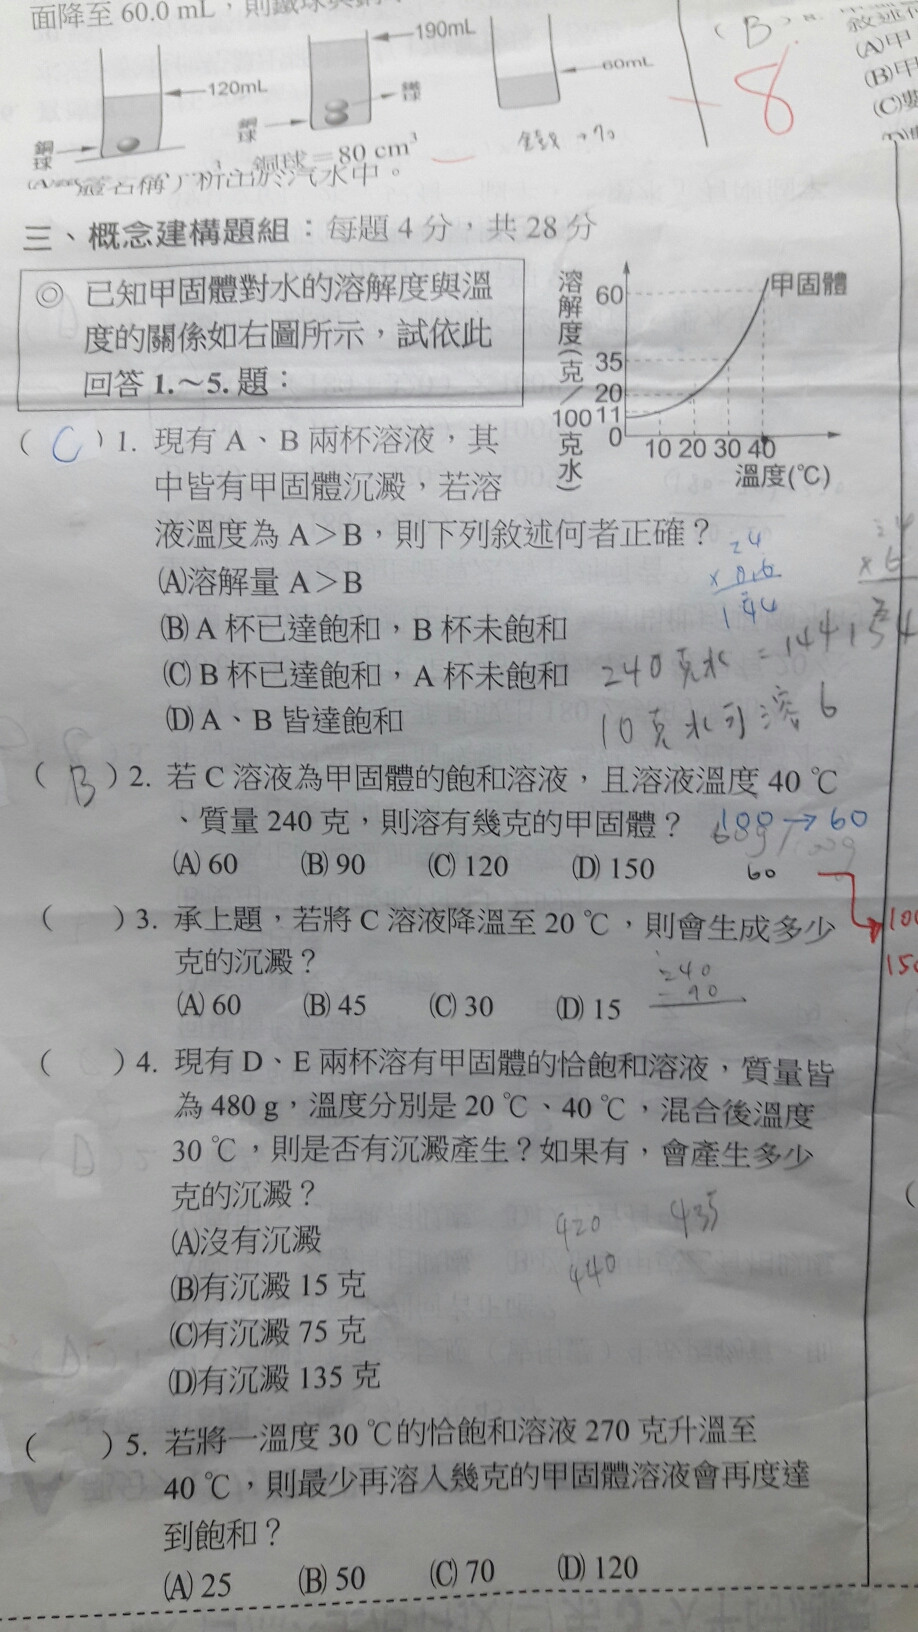 面降至 60.0 mL，則鐵球與銅
190mL
120mL
60mL
鐵
銅球
銅球
銅球＝80 cm³
析出於汽水中。
(B)
-8
敘述
(A)甲
(B)甲
(C)
三、概念建構題組：每題 4 分，共 28 分
◎ 已知甲固體對水的溶解度與溫
度的關係如右圖所示，試依此
回答 1.～5. 題：
溶解度(克／100克水)
甲固體
60
35
20
11
0
10 20 30 40
溫度(℃)
( C ) 1. 現有 A、B 兩杯溶液，其
中皆有甲固體沉澱，若溶
液溫度為 A＞B，則下列敘述何者正確？
(A)溶解量 A＞B
(B) A 杯已達飽和，B 杯未飽和
(C) B 杯已達飽和，A 杯未飽和
(D) A、B 皆達飽和
24
× 0.6
144
× 6
240克水 = 144
10克水可溶 6
( B ) 2. 若 C 溶液為甲固體的飽和溶液，且溶液溫度 40 ℃
、質量 240 克，則溶有幾克的甲固體？
100 → 60
(A) 60 (B) 90 (C) 120 (D) 150
60
100
( ) 3. 承上題，若將 C 溶液降溫至 20 ℃，則會生成多少
克的沉澱？
240
- 90
(A) 60 (B) 45 (C) 30 (D) 15
( ) 4. 現有 D、E 兩杯溶有甲固體的恰飽和溶液，質量皆
為 480 g，溫度分別是 20 ℃、40 ℃，混合後溫度
30 ℃，則是否有沉澱產生？如果有，會產生多少
克的沉澱？
(A)沒有沉澱
420 435
440
(B)有沉澱 15 克
(C)有沉澱 75 克
(D)有沉澱 135 克
( ) 5. 若將一溫度 30 ℃的恰飽和溶液 270 克升溫至
40 ℃，則最少再溶入幾克的甲固體溶液會再度達
到飽和？
(A) 25 (B) 50 (C) 70 (D) 120